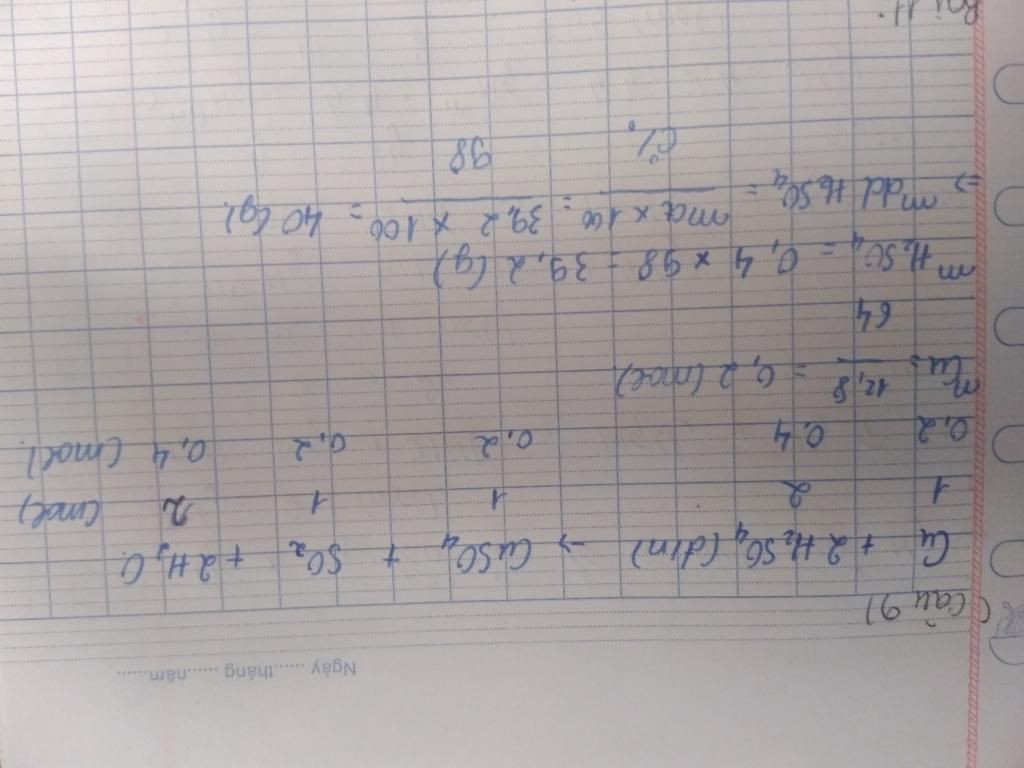 Ngày ...... tháng ...... năm ......
(Câu 9)
Cu + 2H₂SO₄ (đ/n) → CuSO₄ + SO₂ + 2H₂O
1 2 1 1 2 (mol)
0,2 0,4 0,2 0,2 0,4 (mol)
nCu = 12,8 / 64 = 0,2 (mol)
mH₂SO₄ = 0,4 × 98 = 39,2 (g)
⇒ mdd H₂SO₄ = mct × 100 / C% = 39,2 × 100 / 98 = 40 (g)
Bài 11: